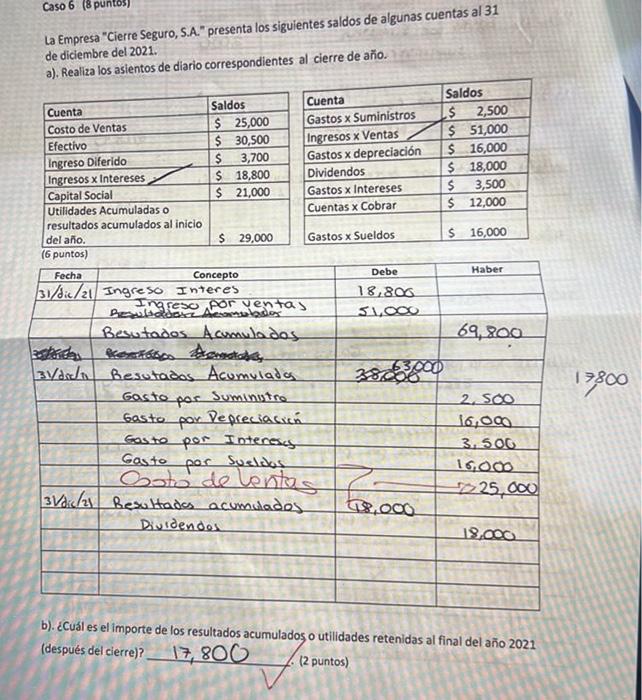 Caso 6 (8 puntos)
La Empresa "Cierre Seguro, S.A." presenta los siguientes saldos de algunas cuentas al 31
de diciembre del 2021.
a). Realiza los asientos de diario correspondientes al cierre de año.
Cuenta Saldos
Costo de Ventas $ 25,000
Efectivo $ 30,500
Ingreso Diferido $ 3,700
Ingresos x Intereses $ 18,800
Capital Social $ 21,000
Utilidades Acumuladas o
resultados acumulados al inicio
del año. $ 29,000
Cuenta Saldos
Gastos x Suministros $ 2,500
Ingresos x Ventas $ 51,000
Gastos x depreciación $ 16,000
Dividendos $ 18,000
Gastos x Intereses $ 3,500
Cuentas x Cobrar $ 12,000
Gastos x Sueldos $ 16,000
(6 puntos)
Fecha Concepto Debe Haber
31/dic/21 Ingreso Interes 18,800
Ingreso por ventas 51,000
Resutados Acumulados 69,800
31/dic/21 Resutados Acumulados 63,000
Gasto por Suministro 2,500
Gasto por Depreciación 16,000
Gasto por Intereses 3,500
Gasto por Sueldos 16,000
Costo de Ventas 25,000
31/dic/21 Resultados acumulados 18,000
Dividendos 18,000
17800
b). ¿Cuál es el importe de los resultados acumulados o utilidades retenidas al final del año 2021
(después del cierre)? 17,800 . (2 puntos)